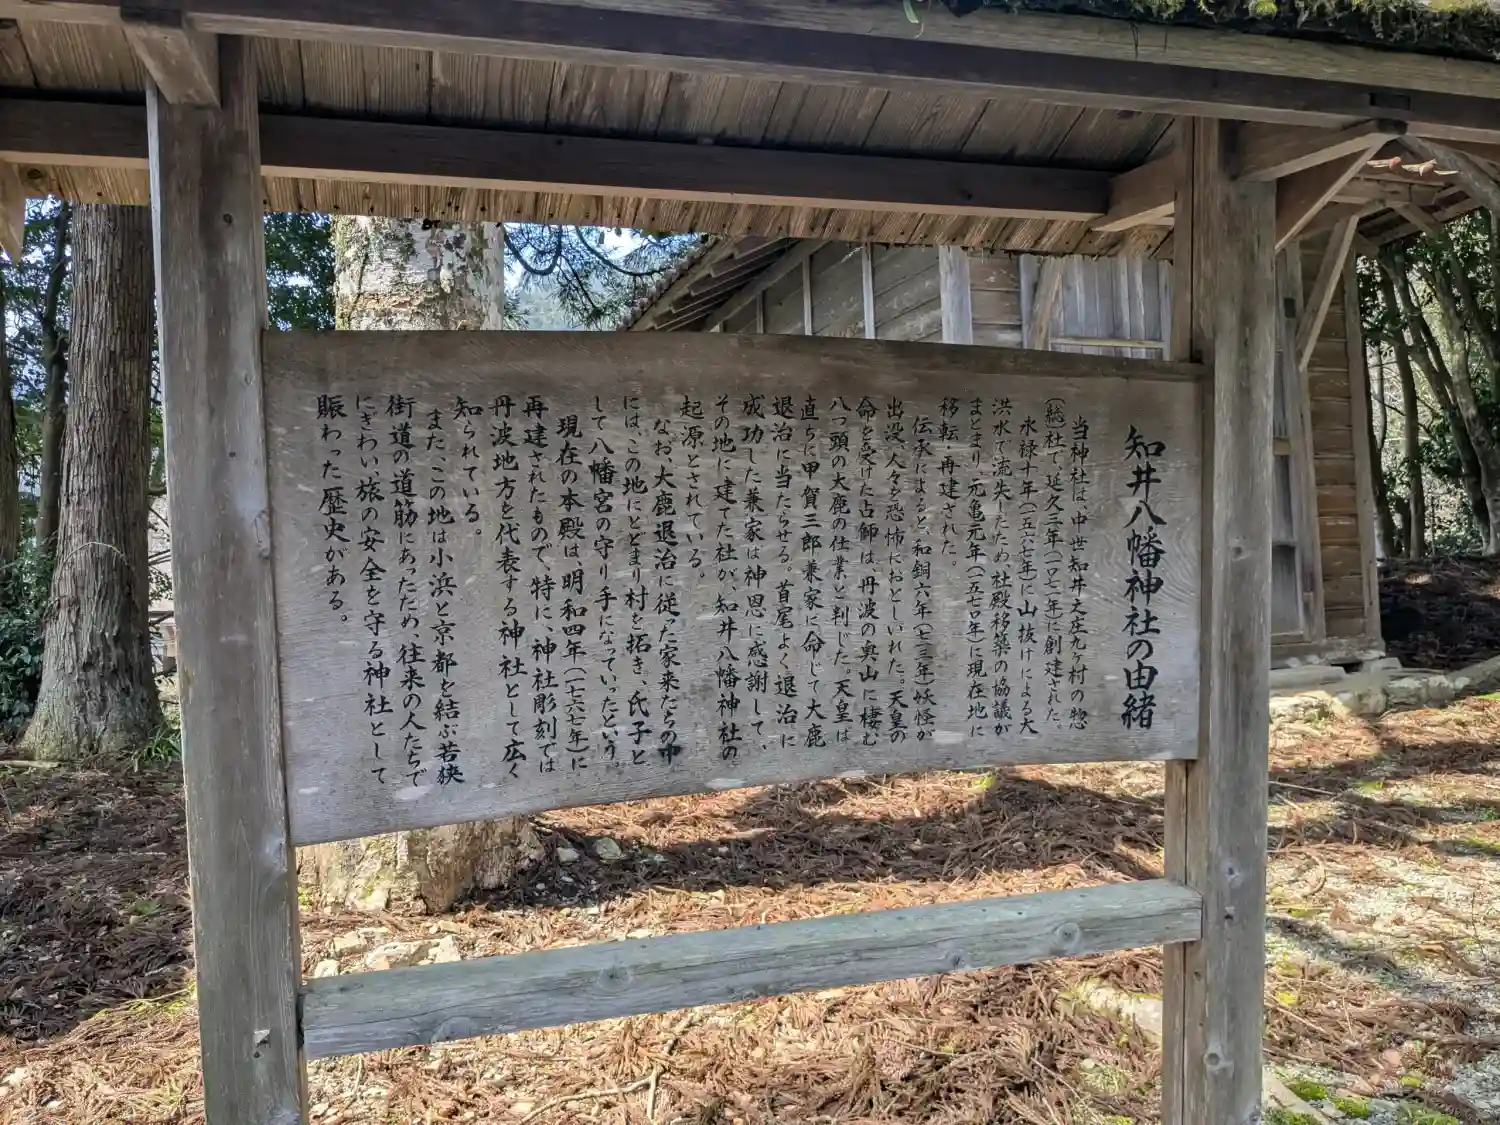 知井八幡神社の由緒
当神社は、中世知井之庄九ヶ村の惣
(総)社で、延久三年(一〇七一年)に創建された。
永禄十年(一五六七年)に山抜けによる大
洪水で流失したため、社殿移築の協議が
まとまり、元亀元年(一五七〇年)に現在地に
移転、再建された。
伝承によると、和銅六年(七一三年)妖怪が
出没、人々を恐怖におとしいれた。天皇の
命を受けた占師は、丹波の奥山に棲む
八つ頭の大鹿の仕業と判じた。天皇は
直ちに甲賀三郎兼家に命じて大鹿
退治に当たらせる。首尾よく退治に
成功した兼家は神恩に感謝して、
その地に建てた社が、知井八幡神社の
起源とされている。
なお、大鹿退治に従った家来たちの中
には、この地にとどまり村を拓き。氏子と
して八幡宮の守り手になっていったという。
現在の本殿は、明和四年(一七六七年)に
再建されたもので、特に、神社彫刻では
丹波地方を代表する神社として広く
知られている。
また、この地は小浜と京都を結ぶ若狭
街道の道筋にあたため、往来の人たちで
にぎわい、旅の安全を守る神社として
賑わった歴史がある。